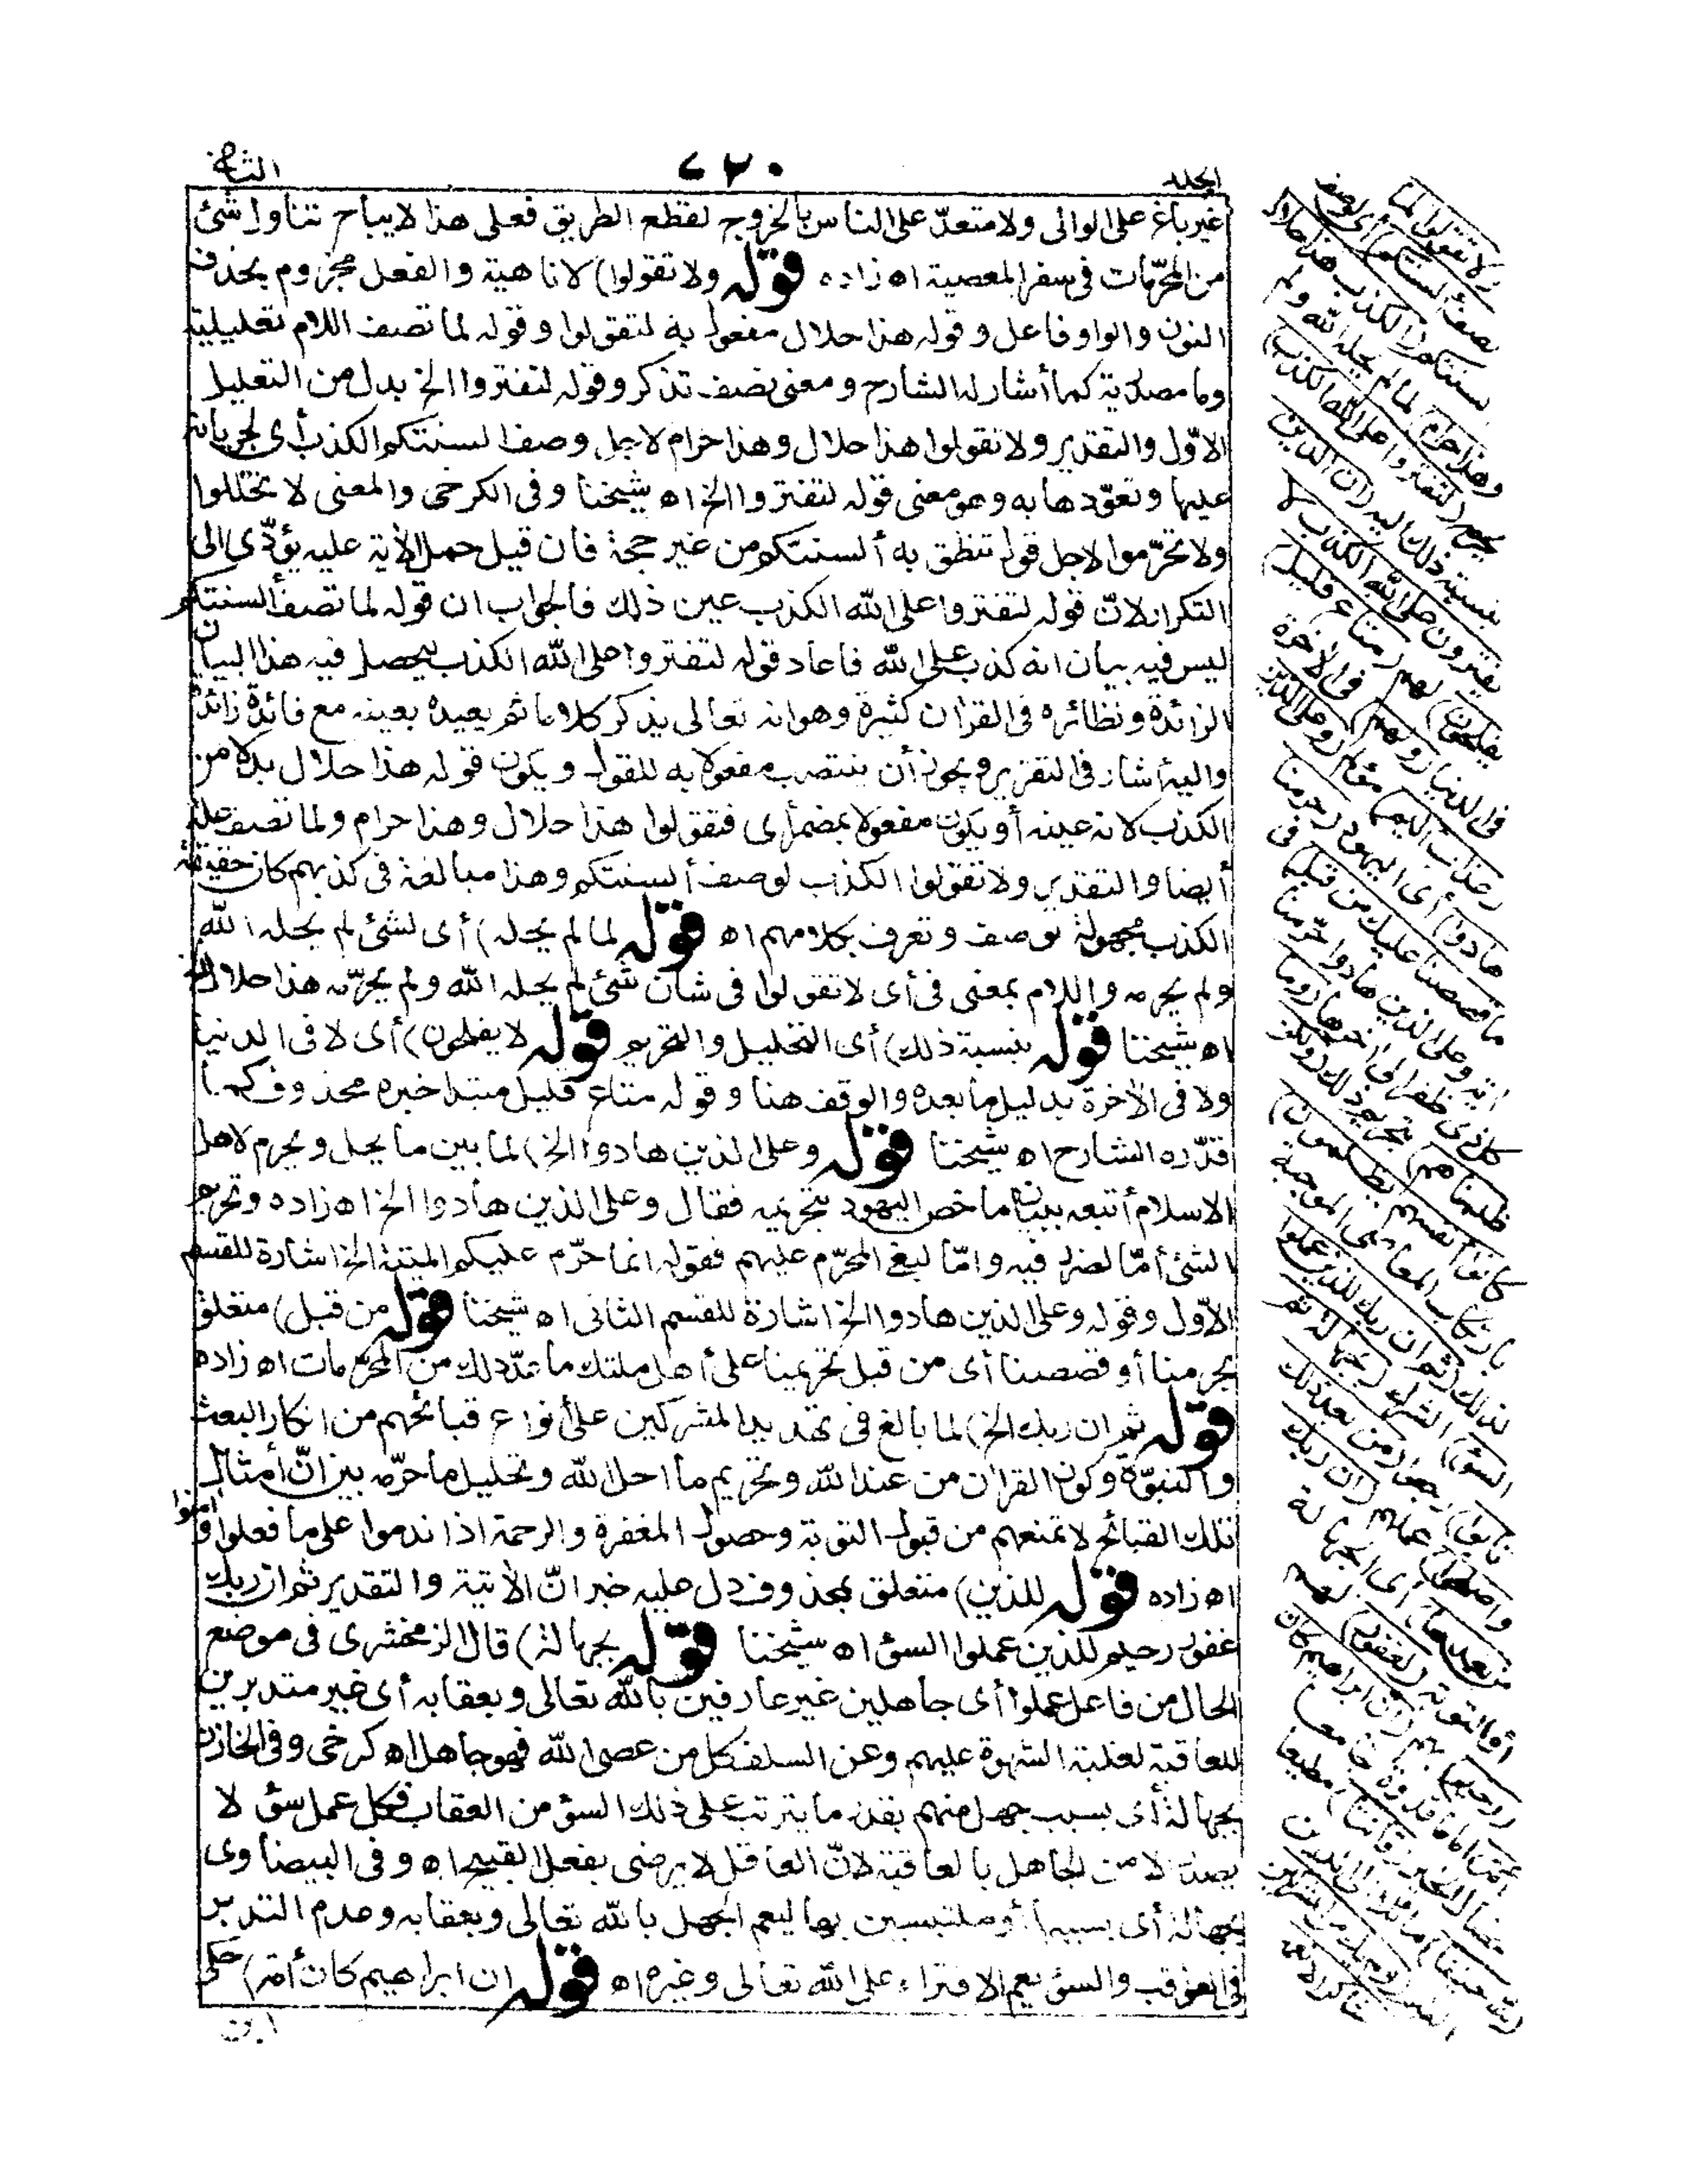 المجلد
٦٢٠
الثانى
غير باغ على الوالى ولا متعدّ على الناس بالخروج لقطع الطريق فعلى هذا لا يباح تناول شئ
من المحرّمات فى سفر المعصية اه زاده قوله ولا تقولوا) لا ناهية والفعل مجزوم بحذف
النون والواو فاعل وقوله هذا حلال مفعول به لتقولوا وقوله لما تصف اللام تعليلية
وما مصدرية كما أشار له الشارح ومعنى تصف تذكر وقوله لتفتروا الخ بدل من التعليل
الاوّل والتقدير ولا تقولوا هذا حلال وهذا حرام لاجل وصف السنتكم الكذب أى لجريانه
عليها وتعوّدها به وهو معنى قوله لتفتروا الخ اه شيخنا وفى الكرخى والمعنى لا تحللوا
ولا تحرّموا لاجل قول تنطق به ألسنتكم من غير حجة فان قيل حمل الآية عليه يؤدّى الى
التكرار لانّ قوله لتفتروا على الله الكذب عين ذلك فالجواب ان قوله لما تصف ألسنتكم
ليس فيه بيان انه كذب على الله فاعاد قوله لتفتروا على الله الكذب ليحصل فيه هذا البيان
الزائدة ونظائره فى القرآن كثيرة وهو انه تعالى يذكر كلاما ثم يعيده بعينه مع فائدة زائدة
واليه أشار فى التقرير ويجوز أن ينتصب مفعولا به للقول ويكون قوله هذا حلال بدلا من
الكذب لانه عينه أو يكون مفعولا بمضمر أى فتقولوا هذا حلال وهذا حرام ولما تصف علة
أيضا والتقدير ولا تقولوا الكذب لوصف ألسنتكم وهذا مبالغة فى كذبهم كان حقيقة
الكذب مجهولة توصف وتعرف بكلامهم اه قوله لما لم يحله) أى لشئ لم يحله الله
ولم يحرمه واللام بمعنى فى أى لا تقولوا فى شان شئ لم يحله الله ولم يحرّمه هذا حلال الخ
اه شيخنا قوله بنسبة ذلك) أى التحليل والتحريم قوله لا يفلحون) أى لا فى الدنيا
ولا فى الآخرة بدليل ما بعده والوقف هنا وقوله متاع قليل مبتدا خبره محذوف كما
قدّره الشارح اه شيخنا قوله وعلى الذين هادوا الخ) لما بين ما يحل ويحرم لاهل
الاسلام أتبعه ببيان ما خص اليهود بتحريمه فقال وعلى الذين هادوا الخ اه زاده وتحريم
الشئ أمّا لضرر فيه وامّا لبغى المحرّم عليهم فقوله انما حرّم عليكم الميتة الخ اشارة للقسم
الاوّل وقوله وعلى الذين هادوا الخ اشارة للقسم الثانى اه شيخنا قوله من قبل) متعلق
بحرمنا أو قصصنا أى من قبل تحريمنا على أهل ملتك ما عدّد لك من المحرمات اه زاده
قوله ثم ان ربك الخ) لما بالغ فى تهديد المشركين على أنواع قبائحهم من انكار البعث
والنبوّة وكون القرآن من عند الله وتحريم ما احل الله وتحليل ما حرّمه بين انّ أمثال
تلك القبائح لا تمنعهم من قبول التوبة وحصول المغفرة والرحمة اذا ندموا على ما فعلوا وآمنوا
اه زاده قوله للذين) متعلق بمحذوف دل عليه خبر انّ الآتية والتقدير ثم ان ربك
غفور رحيم للذين عملوا السؤ اه شيخنا قوله بجهالة) قال الزمخشرى فى موضع
الحال من فاعل عملوا أى جاهلين غير عارفين بالله تعالى وبعقابه أى غير متدبرين
للعاقبة لغلبة الشهوة عليهم وعن السلف كل من عصى الله فهو جاهل اه كرخى وفى الخازن
بجهالة أى بسبب جهل منهم بقدر ما يترتب على ذلك السؤ من العقاب فكل عمل سؤ لا
يصدر الا من الجاهل بالعاقبة لانّ العاقل لا يرضى بفعل القبيح اه وفى البيضاوى
بجهالة أى بسببها أو ملتبسين بها ليعم الجهل بالله تعالى وبعقابه وعدم التدبر
فى العواقب والسؤ يعم الافتراء على الله تعالى وغيره اه قوله ان ابراهيم كان أمة) حكى
ابن
ولا تقولوا لما
تصف ألسنتكم) أى لوصف
ألسنتكم (الكذب هذا حلال
وهذا حرام) لما لم يحله الله ولم
يحرمه (لتفتروا على الله الكذب)
بنسبة ذلك اليه (ان الذين
يفترون على الله الكذب لا
يفلحون) لهم (متاع قليل)
فى الدنيا (ولهم) فى الآخرة
(عذاب أليم) مؤلم (وعلى الذين
هادوا) أى اليهود (حرمنا
ما قصصنا عليك من قبل) فى
آية وعلى الذين هادوا حرّمنا
كل ذى ظفر الى آخرها (وما
ظلمناهم) بتحريم ذلك (ولكن
كانوا أنفسهم يظلمون)
بارتكاب المعاصى الموجبة
لذلك (ثم ان ربك للذين عملوا
السؤ) الشرك (بجهالة ثم
تابوا) رجعوا (من بعد ذلك
وأصلحوا) عملهم (ان ربك
من بعدها) أى الجهالة
أو التوبة (لغفور) لهم
(رحيم) بهم (ان ابراهيم كان
أمة) اماما قدوة جامعا
لخصال الخير (قانتا) مطيعا
(لله حنيفا) مائلا الى الدين
القيم (ولم يك من المشركين
شاكرا لانعمه